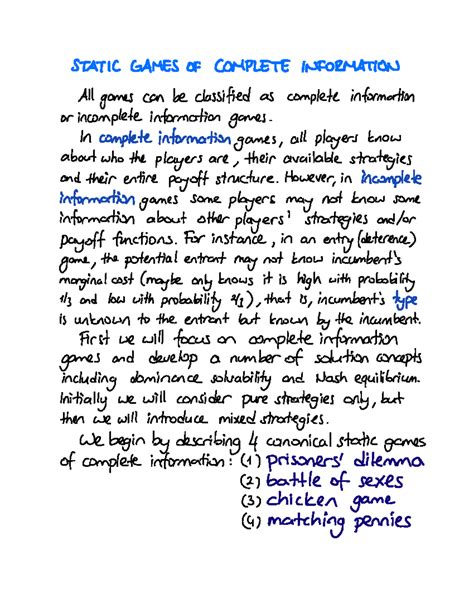 STATIC GAMES OF COMPLETE INFORMATION
All games can be classified as complete information
or incomplete information games.
In complete information games, all players know
about who the players are, their available strategies
and their entire payoff structure. However, in incomplete
information games some players may not know some
information about other players' strategies and/or
payoff functions. For instance, in an entry (deterence)
game, the potential entrant may not know incumbent's
marginal cost (maybe only knows it is high with probability
1/3 and low with probability 2/3), that is, incumbent's type
is unknown to the entrant but known by the incumbent.
First we will focus on complete information
games and develop a number of solution concepts
including dominance solvability and Nash equilibrium.
Initially we will consider pure strategies only, but
then we will introduce mixed strategies.
We begin by describing 4 canonical static games
of complete information: (1) prisoners' dilemma
(2) battle of sexes
(3) chicken game
(4) matching pennies